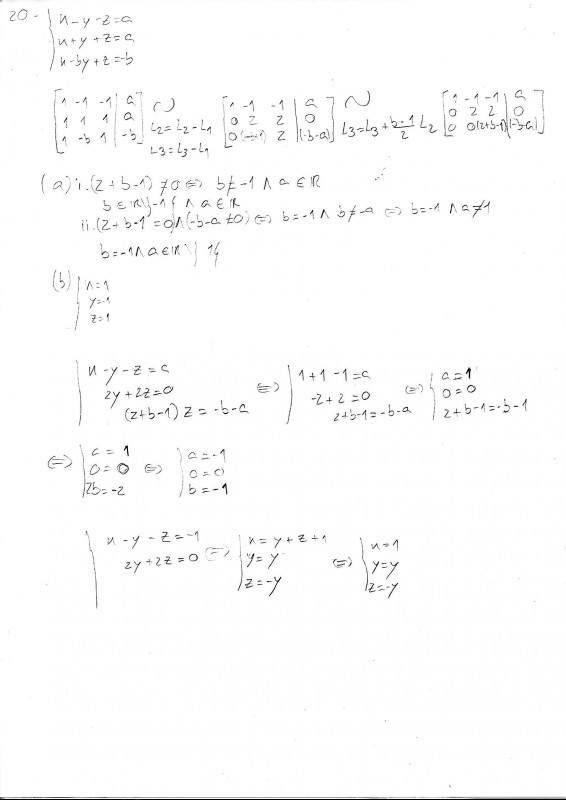 20-
{ x - y - z = a
x + y + z = a
x - by + z = -b
[1 -1 -1 | a
1 1 1 | a
1 -b 1 | -b] ~ L2 = L2 - L1
L3 = L3 - L1
[1 -1 -1 | a
0 2 2 | 0
0 (-b+1) 2 | (-b-a)] ~ L3 = L3 + b-1/2 L2
[1 -1 -1 | a
0 2 2 | 0
0 0 (2+b-1) | (-b-a)]
(a) i. (2+b-1) ≠ 0 ⇔ b ≠ -1 ∧ a ∈ ℝ
b ∈ ℝ\{-1} ∧ a ∈ ℝ
ii. (2+b-1 = 0) ∧ (-b-a ≠ 0) ⇔ b = -1 ∧ b ≠ -a ⇔ b = -1 ∧ a ≠ 1
b = -1 ∧ a ∈ ℝ \ {1}
(b) { x = 1
y = -1
z = 1
{ x - y - z = a
2y + 2z = 0
(2+b-1) z = -b-a
⇔ { 1 + 1 - 1 = a
-2 + 2 = 0
2+b-1 = -b-a
⇔ { a = 1
0 = 0
2+b-1 = -b-1
⇔ { a = 1
0 = 0
2b = -2
⇔ { a = -1
0 = 0
b = -1
{ x - y - z = -1
2y + 2z = 0
⇔ { x = y + z + 1
y = y
z = -y
⇔ { x = 1
y = y
z = -y